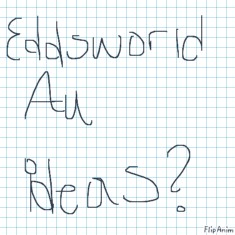 Eddsworld
Au
ideas?
FlipAnim